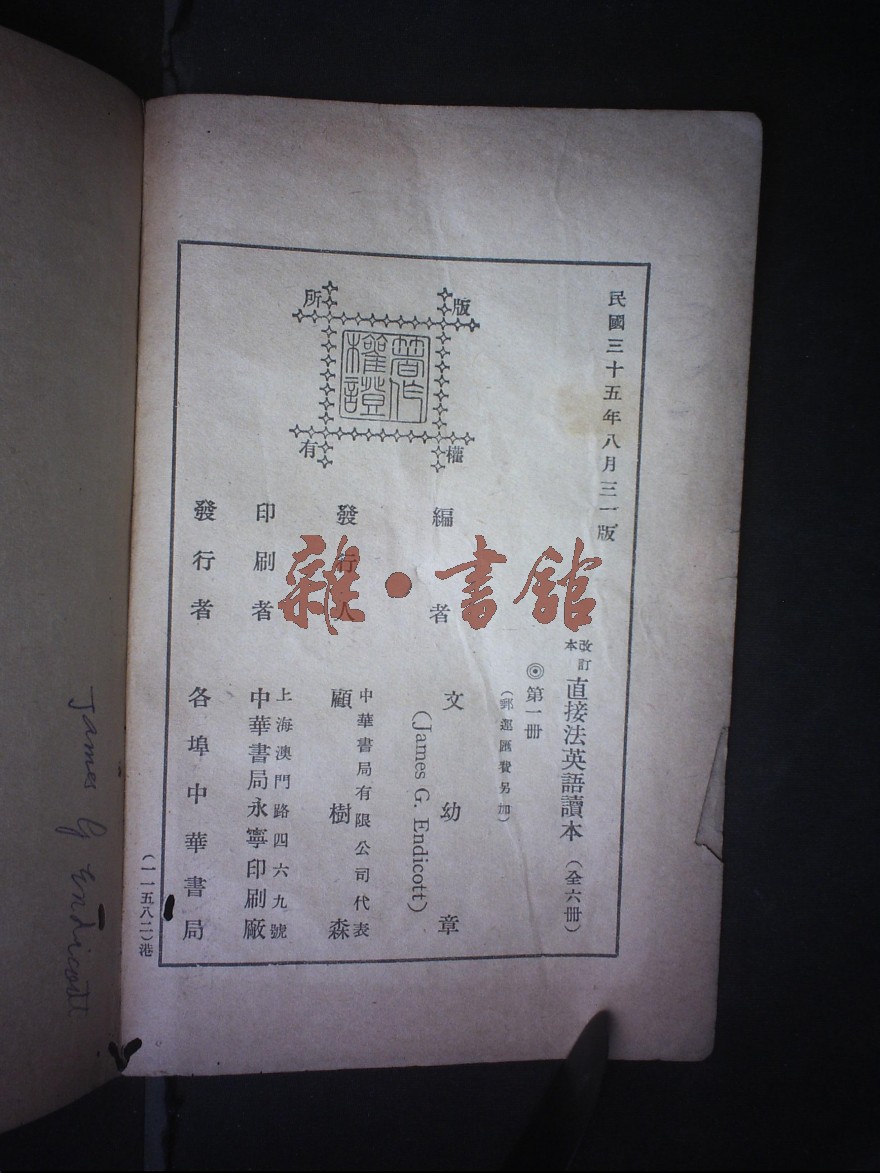 民國三十五年八月三一版
改訂本 直接法英語讀本（全六册）
◎第一册
（郵運匯費另加）
編者 文幼章
(James G. Endicott)
發行人 中華書局有限公司代表
顧樹森
印刷者 上海澳門路四六九號
中華書局永寧印刷廠
發行者 各埠中華書局
版權所有
著作權登記
（一一五八二）港
James G Endicott
雜·書館